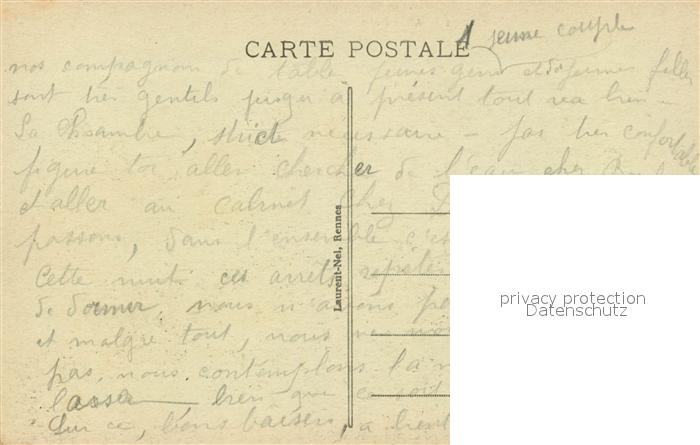 1 jeune couple
CARTE POSTALE
nos compagnons de table jeunes gens et jeunes filles
sont très gentils jusqu'à présent tout va bien -
La chambre, strict nécessaire - pas très confortable
figure toi aller chercher de l'eau chez
et aller au cabinet chez
passons, dans l'ensemble c'es
Cette nuit ces arrêts
de dormir nous n'avons pa
et malgré tout, nous ne
pas, nous contemplons la
lasser bien que ce soit
Sur ce, bons baisers, à bient
Laurent-Nel, Rennes
privacy protection
Datenschutz